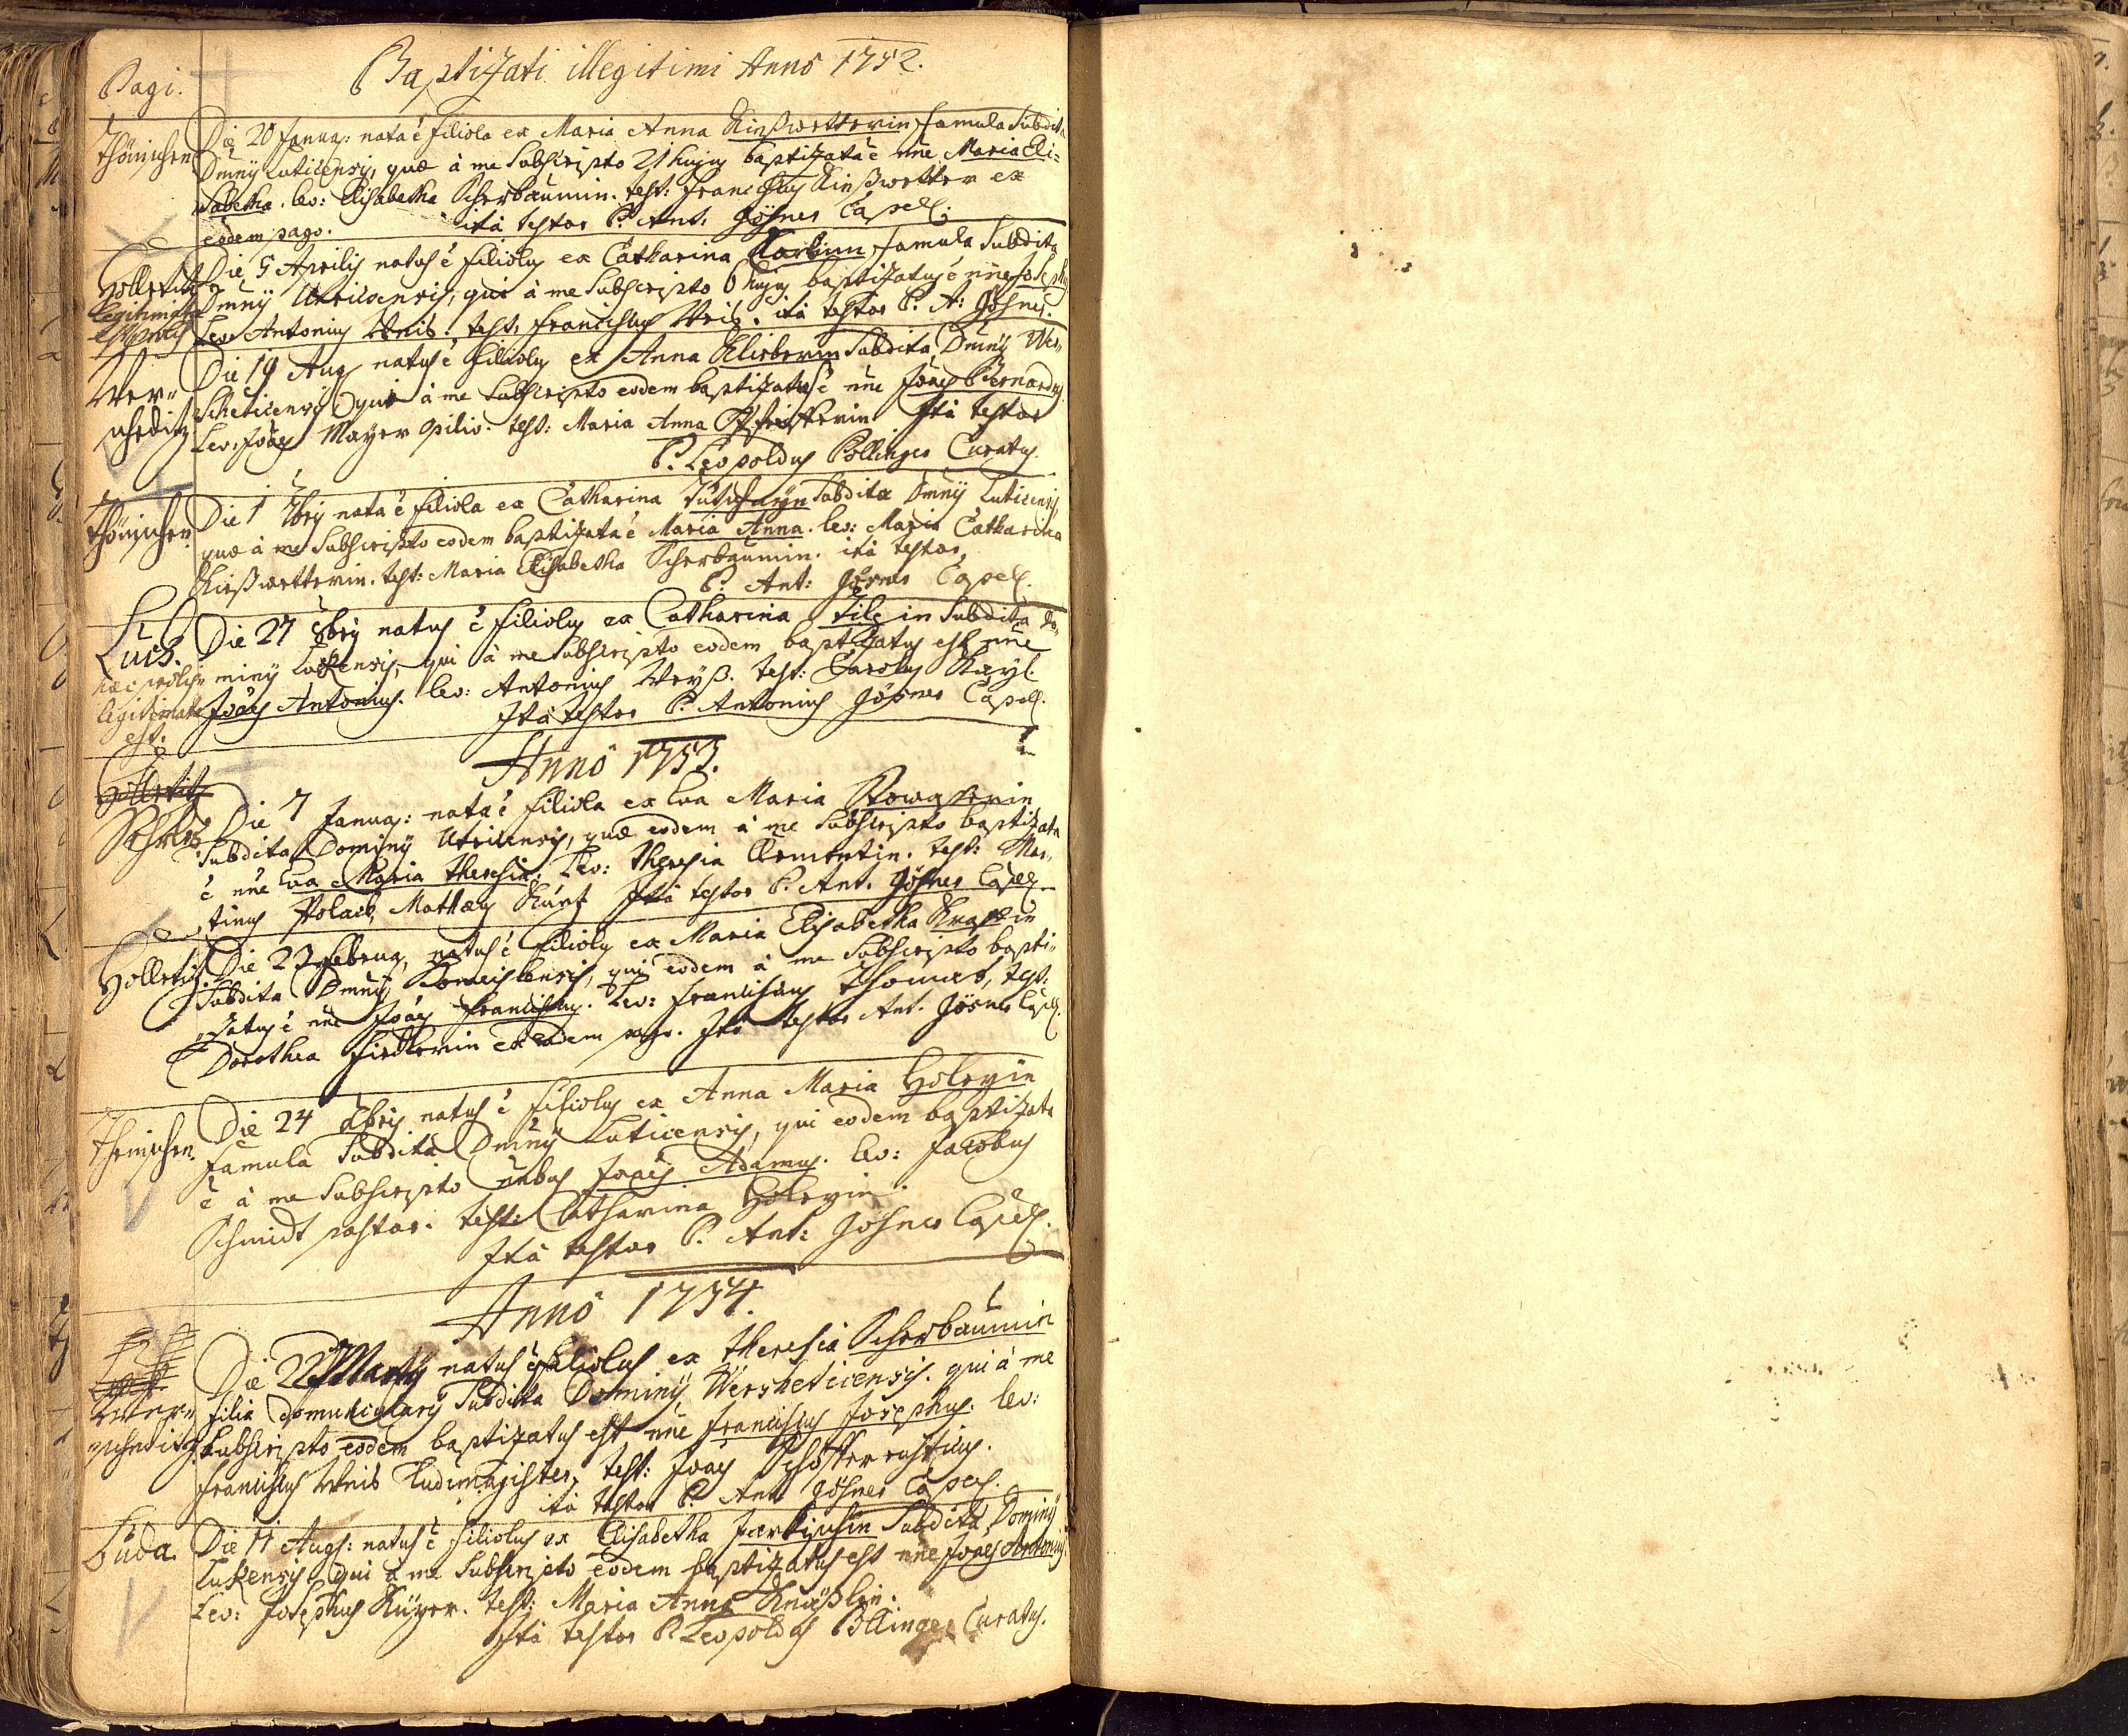 Pagi.
Baptizati illegitimi Anno 1752.
Thönischen
Die 20 Januar: nata ē filiola ex Maria Anna Kinßwetterin famula Subdita
Dmny Luticensis, quæ à me Subscripto 21 hujus baptizata ē nne Maria Eli-
sabetha. lev: Elisabetha Scherbaumin. test: Franciscus Kinßwetter ex
eodem pago. ità testor P. Ant. Gößner Capell:
Holletitz
legitimata
est proles
Die 5 Aprilis natus ē filiolus ex Catharina famula Subdita
Dmny Utvicensis, qui à me Subscripto 6 hujus baptizatus ē nne Josephus
Lev: Antonius Weis. test: Franciscus Weis. ità testor P. A: Gößner.
Wer-
scheditz
Die 19 Aug natus ē filiolus ex Anna Subdita Dmny Wer-
scheticensis qui à me Subscripto eodem baptizatus ē nne Joaes Bernardus.
Lev: Joaes Mayer opilio. test: Maria Anna Ità testor
P. Leopoldus Pöllinger Curatus.
Thönischen.
Die 1 7bris nata ē filiola ex Catharina Subdita Dmny Luticensis
quæ à me Subscripto eodem baptizata ē Maria Anna. lev: Maria Catharina
Kinßwetterin. test: Maria Elisabetha Scherbaumin. ità testor,
P. Ant: Gößner Capell.
Luck.
hæc proles
legitimata
est.
Die 27 8bris natus ē filiolus ex Catharina Subdita Do-
miny Luckensis, qui à me Subscripto eodem baptizatus est nne
Joaes Antonius. lev: Antonius Weyß. test: Carolus Kayl.
Ità testor P. Antonius Gößner Capell.
Anno 1753.
Holletitz
Die 7 Januar: nata ē filiola ex Eva Maria
Subdita Dominy Utvicensis, quæ eodem à me Subscripto baptizata
ē nne Eva Maria Theresia. Lev: Theresia Clementin. test: Mar-
tinus Polack, Mathæus Kuntz Ità testor P. Ant. Gößner Capell.
Holletitz.
Die 23 Februar, natus ē filiolus ex Maria Elisabetha
Subdita Dmny qui eodem à me Subscripto bapti-
zatus ē nne Joaes Franciscus. Lev: Franciscus Thomas, test:
Dorothea Fiedlerin ex eodem pago. Ità testor Ant. Gößner Capell.
Thenischen.
Die 24 Xbris natus ē filiolus ex Anna Maria Holeyin
famula Subdita Dmny Luticensis, qui eodem baptizatus
ē à me Subscripto nnibus Joaes Adamus. lev: Jacobus
Schmidt pastor. test: Catharina Holeyin.
Ità testor P. Ant: Gößner Capell.
Anno 1754.
Wer-
scheditz.
Die 22 Marty natus ē filiolus ex Theresia Scherbaumin
filia domuncularij Subdita Dominy Wersheticensis. qui à me
Subscripto eodem baptizatus est nne Franciscus Josephus. lev:
Franciscus Weis Ludimagister, test: Joaes rusticus.
ità testor P. Ant Gößner Capell.
Buda.
Die 17 Augs: natus ē filiolus ex Elisabetha Subdita Dominy
Luckensis qui à me Subscripto eodem baptizatus est nne Joaes Antonius.
Lev: Josephus test: Maria Anna
Ità testor P. Leopoldus Pöllinger Curatus.